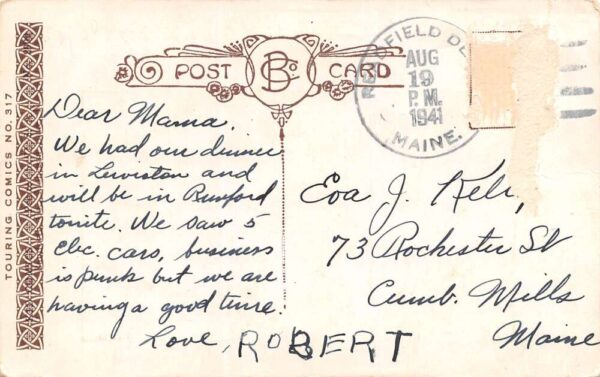 TOURING COMICS NO. 317
POST CARD
B Co
FIELD
AUG
19
P.M.
1941
MAINE.
Dear Mama,
We had our dinner
in Lewiston and
will be in Rumford
tonite. We saw 5
Elec. cars, business
is punk but we are
having a good time.
Love, ROBERT
Eva J.
73 Rochester St
Cumb. Mills
Maine